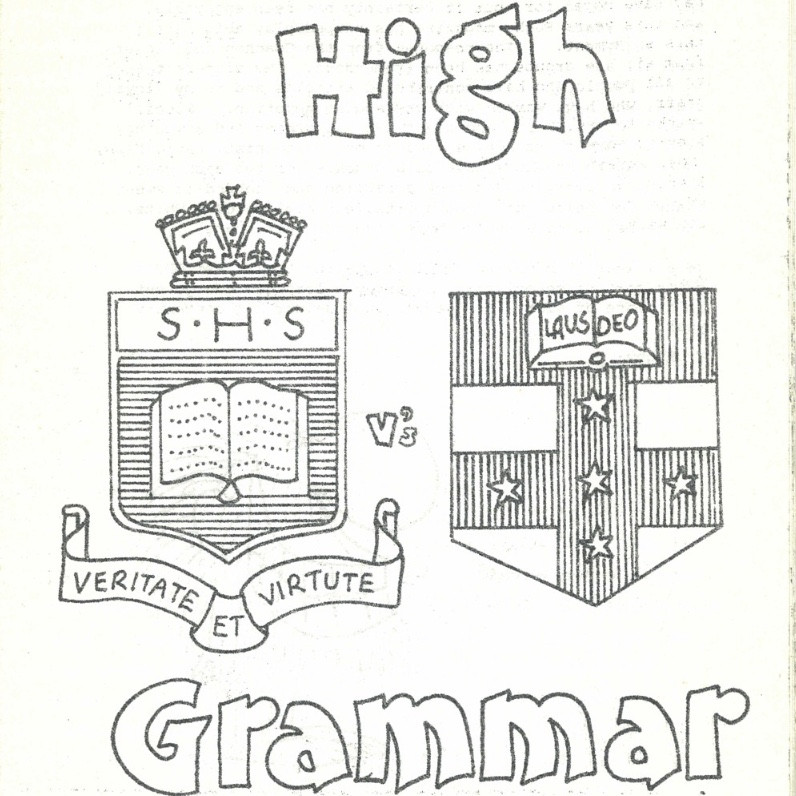 High
S·H·S
LAUS DEO
V's
VERITATE ET VIRTUTE
Grammar